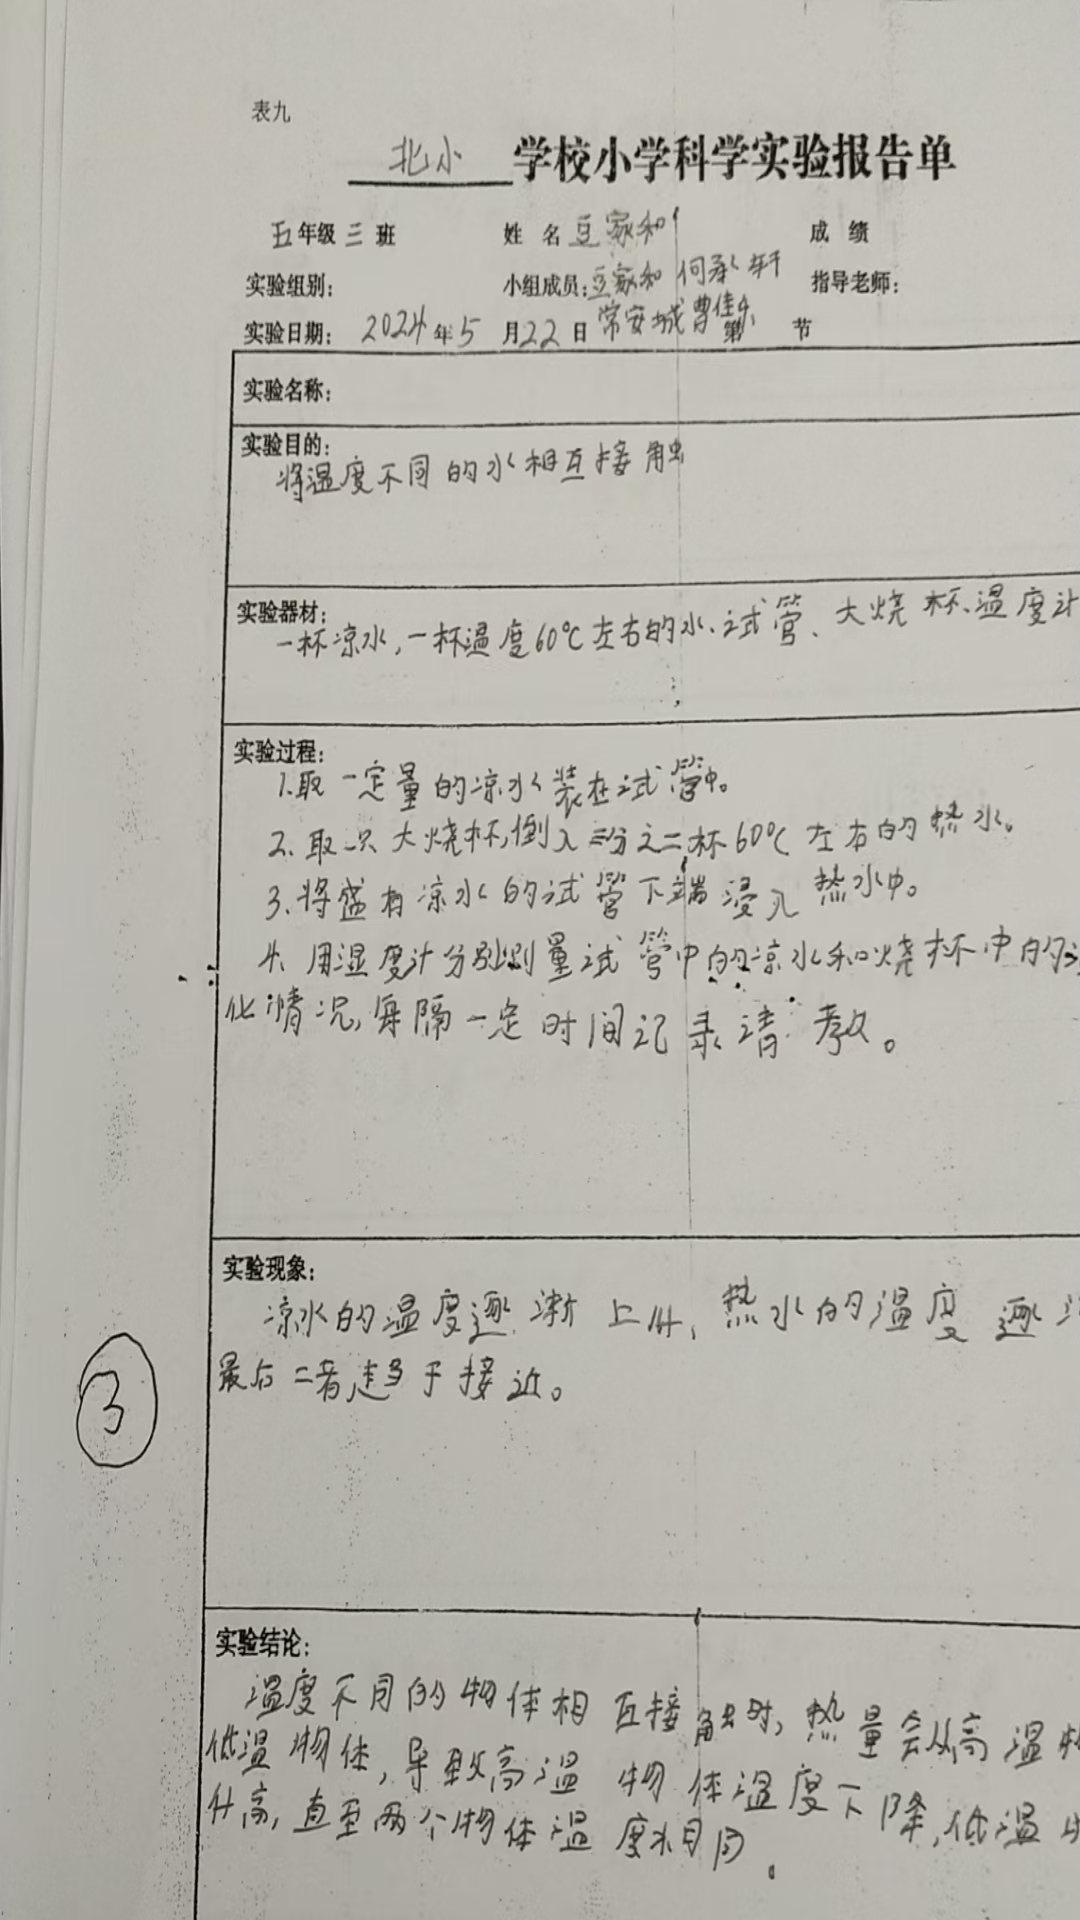 表九
北小 学校小学科学实验报告单
五年级三班 姓名 豆家和 成绩
实验组别： 小组成员：豆家和 何承轩 指导老师：
实验日期： 2024年5月22日 常安城 曹佳乐 第 节
实验名称：
实验目的：
将温度不同的水相互接触
实验器材：
一杯凉水，一杯温度60℃左右的水、试管、大烧杯、温度计
实验过程：
1.取一定量的凉水装在试管中。
2.取一只大烧杯，倒入三分之二杯60℃左右的热水。
3.将盛有凉水的试管下端浸入热水中。
4.用温度计分别测量试管中的凉水和烧杯中的
化情况，每隔一定时间记录请教。
实验现象：
凉水的温度逐渐上升，热水的温度逐
最后二者趋于接近。
③
实验结论：
温度不同的物体相互接触时，热量会从高温
低温物体，导致高温物体温度下降，低温
升高，直至两个物体温度相同。